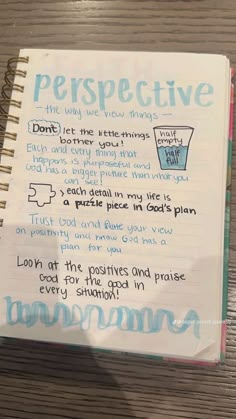 perspective
- the way we view things -
Don't let the little things
bother you!
half
empty
Half
Full
Each and every thing that
happens is purposeful and
God has a bigger picture than what you
can see!
> each detail in my life is
a puzzle piece in God's plan
Trust God and base your view
on positivity and know God has a
plan for you.
Look at the positives and praise
God for the good in
every situation!